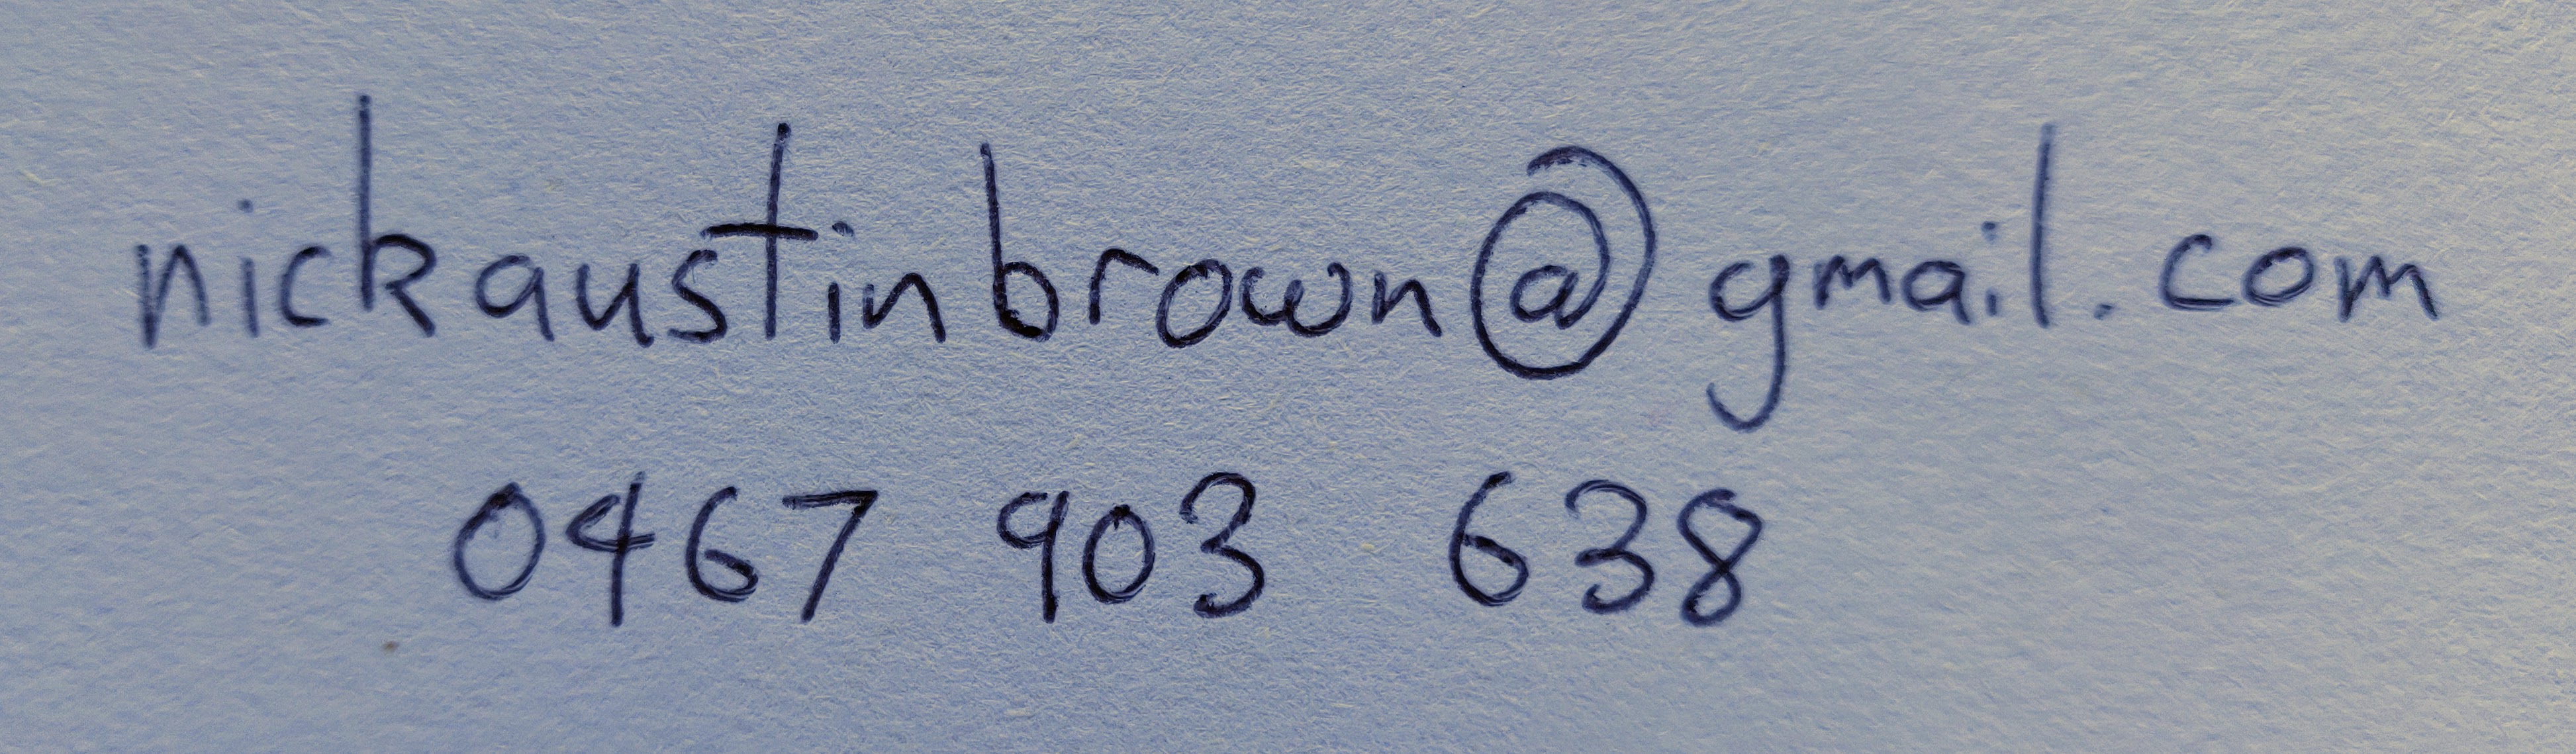 nickaustinbrown@gmail.com
0467 903 638